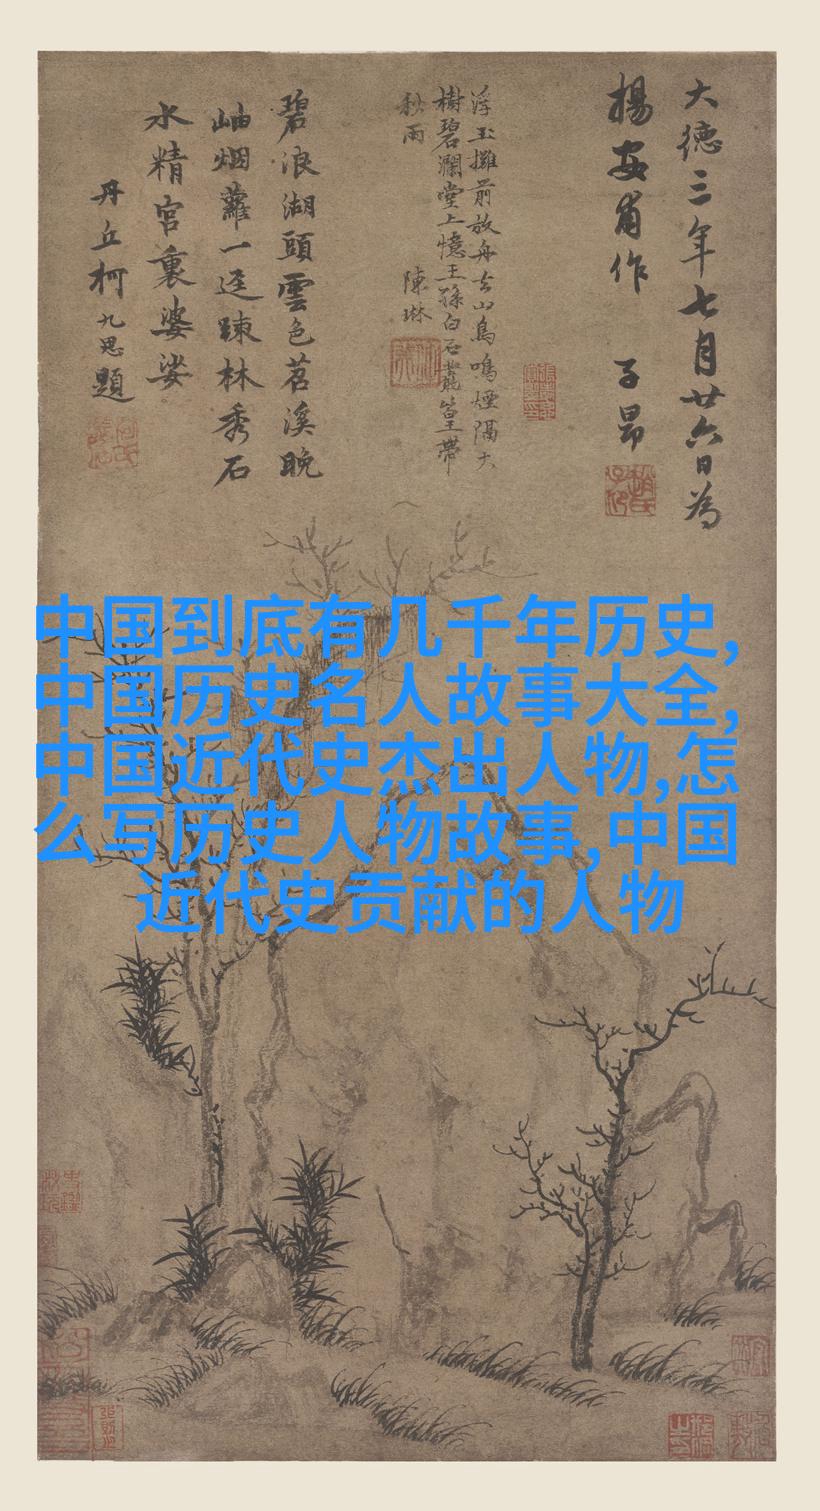 大德三年七月廿六日為
楊安甫作 子昂
浮玉攤前放舟去山鳥鳴煙隔大
樹碧瀾堂上憶王孫白石叢篁帶
秋雨 陳琳
碧浪湖頭雲色苕溪晚
岫烟蘿一逕踈林秀石
水精宮裏婆娑
丹丘柯九思題
中国到底有几千年历史,
中国历史名人故事大全,
中国近代史杰出人物,怎
么写历史人物故事,中国
近代史贡献的人物